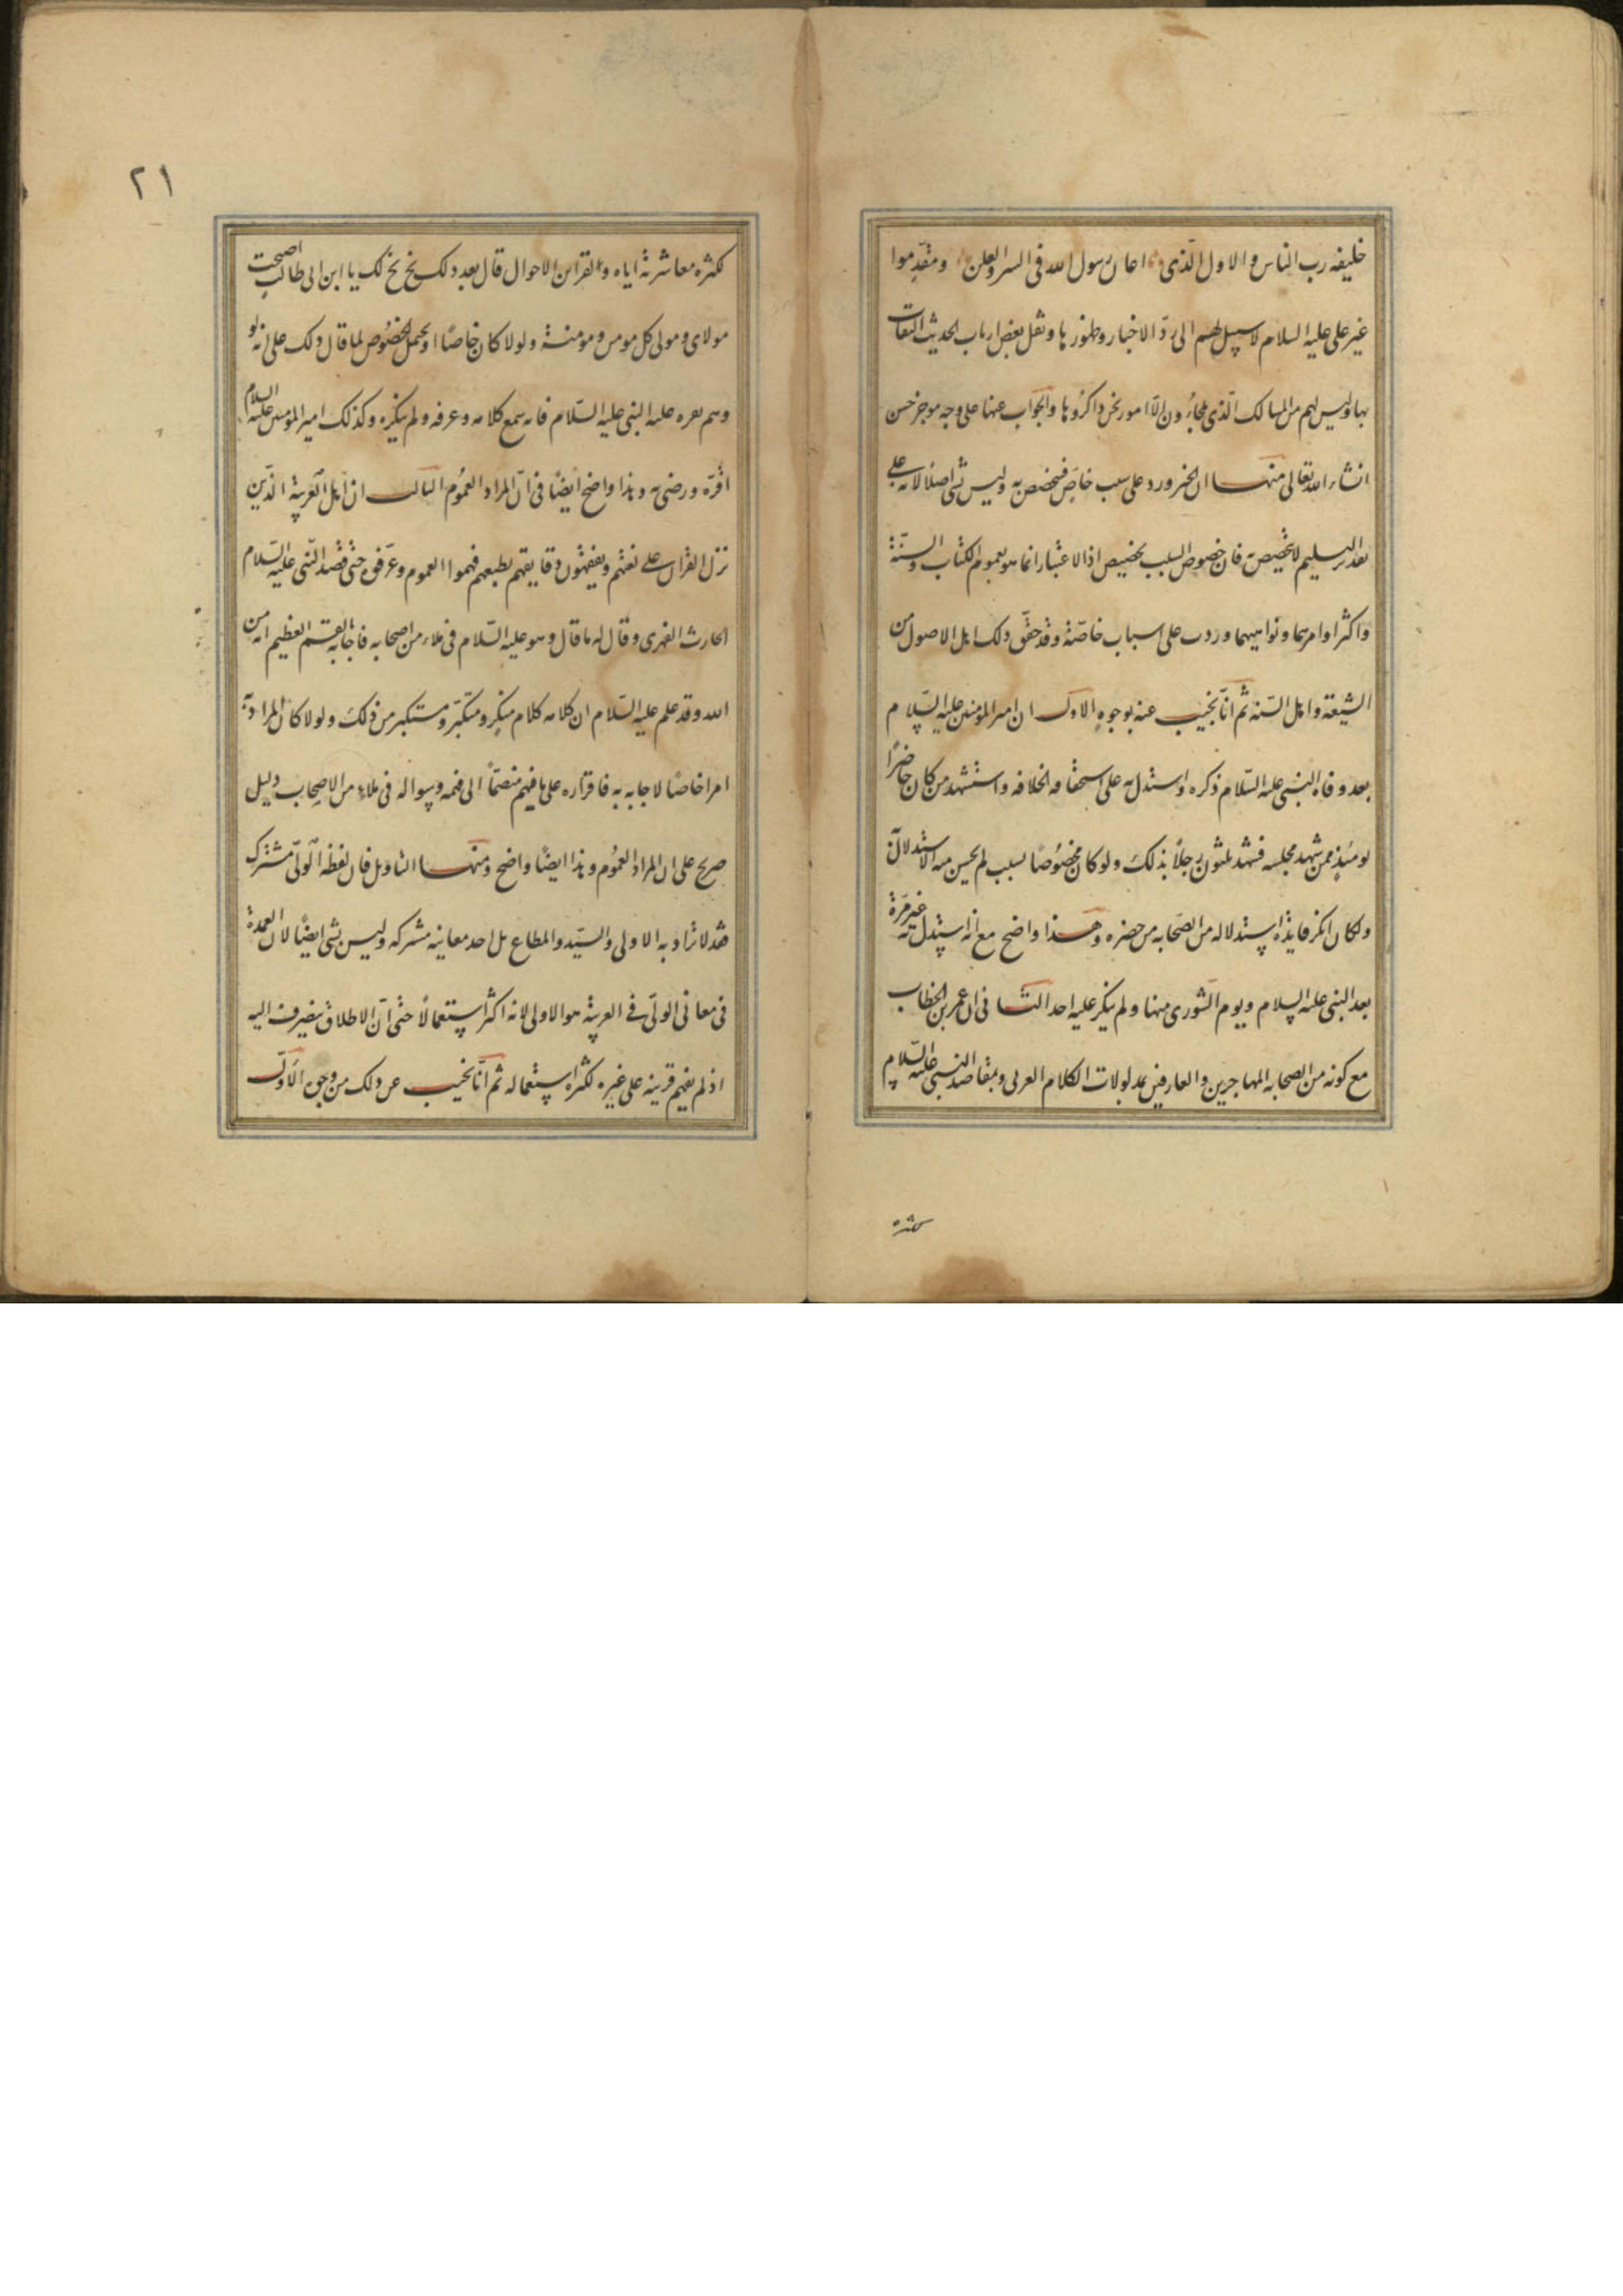 خليفه رب الناس والاول الذى اعان رسول الله فى السر والعلن ومقدموا
غير على عليه السلام لا سبيل لهم الى رد الاخبار وظهورها ونقل بعض ارباب الحديث الثقات
بها وليس لهم من المسالك الذى يلجاؤن الا امور نحن ذاكروها والجواب عنها على وجه موجز حسن
انشاء الله تعالى منها ان الخبر ورد على سبب خاص فيختص به وليس بشى اصلا لانه على
تقدير التسليم لا تخصيص فان خصوص السبب تخصيص اذ الاعتبار انما هو بعموم الكتاب والسنة
واكثر اوامرهما ونواهيهما وردت على اسباب خاصة وقد حقق ذلك اهل الاصول من
الشيعة واهل السنه ثم انا نجيب عنه بوجوه الاول ان امير المؤمنين عليه السلام
بعد وفاه النبى عليه السلام ذكره واستدل به على استحقاقه الخلافه واستشهد من كان حاضرا
يومئذ ممن شهد مجلسه فشهد ثلثون رجلا بذلك ولو كان مخصوصا بسبب لم يحسن منه الاستدلال
ولكان انكر فايدة استدلاله من الصحابه من حضره وهذا واضح مع انه استدل به غير مرة
بعد النبى عليه السلام ويوم الشورى منها ولم ينكر عليه احد الثا فى ان عمر بن الخطاب
مع كونه من الصحابه المهاجرين والعارفين بمدلولات الكلام العربى وبمقاصد النبى عليه السلام
كثرة
٢١
لكثره معاشرته اياه والقراين الاحوال قال بعد ذلك بخ بخ لك يا ابن ابى طالب اصبحت
مولاى ومولى كل مومن ومومنة ولولا كان خاصا او يحمل الخصوص لما قال ذلك على انه لو
وهم لعره عليه النبى عليه السلام فانه سمع كلامه وعرفه ولم ينكره وكذلك امير المومنين عليه السلام
اقره ورضى به وهذا واضح ايضا فى ان المراد العموم الثالث ان اهل العربية الذين
نزل القران على لغتهم ويفقهون دقايقهم بطبعهم فهموا العموم وعرفوه حتى قصد النبى عليه السلام
الحارث الفهرى وقال له ما قال وهو عليه السلام فى ملاء من اصحابه فاجابه بالقسم العظيم انه من
الله وقد علم عليه السلام ان كلامه كلام منكر ومتكبر ومستكبر من ذلك ولولا كان المراد به
امرا خاصا لاجابه به فاقراره على ما فهم منضما الى فهمه وسواله فى ملاء من الاصحاب دليل
صريح على ان المراد العموم وهذا ايضا واضح ومنها التاويل فان لفظة الولى مشترك
فقد لا يراد به الاولى والسيد والمطاع بل احد معانيه مشتركه وليس بشى ايضا لان العمدة
فى معانى الولى فى العربية هو الاولى لانه اكثر استعمالا حتى ان الاطلاق ينصرف اليه
اذ لم يفهم قرينه على غيره لكثرة استعماله ثم انا نجيب عن ذلك من وجوه الاول